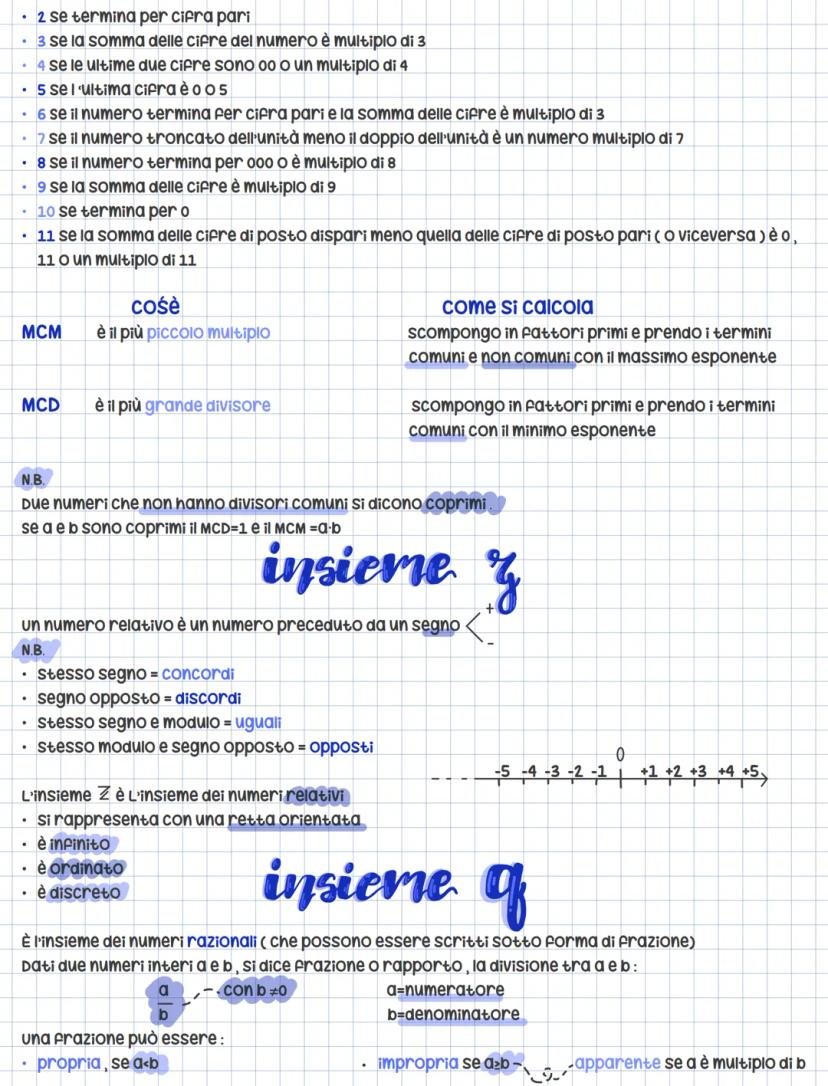 • 2 se termina per cifra pari
• 3 se la somma delle cifre del numero è multiplo di 3
• 4 se le ultime due cifre sono 00 o un multiplo di 4
• 5 se l'ultima cifra è 0 o 5
• 6 se il numero termina per cifra pari e la somma delle cifre è multiplo di 3
• 7 se il numero troncato dell'unità meno il doppio dell'unità è un numero multiplo di 7
• 8 se il numero termina per 000 o è multiplo di 8
• 9 se la somma delle cifre è multiplo di 9
• 10 se termina per 0
• 11 se la somma delle cifre di posto dispari meno quella delle cifre di posto pari ( o viceversa ) è 0,
11 o un multiplo di 11
cos'è come si calcola
MCM è il più piccolo multiplo scompongo in fattori primi e prendo i termini
comuni e non comuni con il massimo esponente
MCD è il più grande divisore scompongo in fattori primi e prendo i termini
comuni con il minimo esponente
N.B.
Due numeri che non hanno divisori comuni si dicono coprimi.
se a e b sono coprimi il MCD=1 e il MCM =a·b
insieme z
un numero relativo è un numero preceduto da un segno + -
N.B.
• stesso segno = concordi
• segno opposto = discordi
• stesso segno e modulo = uguali
• stesso modulo e segno opposto = opposti
0
-5 -4 -3 -2 -1 +1 +2 +3 +4 +5
L'insieme ℤ è L'insieme dei numeri relativi
• si rappresenta con una retta orientata
• è infinito
• è ordinato
• è discreto
insieme q
È l'insieme dei numeri razionali ( che possono essere scritti sotto forma di frazione)
Dati due numeri interi a e b, si dice frazione o rapporto, la divisione tra a e b:
a con b ≠0 a=numeratore
b b=denominatore
una frazione può essere:
• propria, se a<b • impropria se a≥b apparente se a è multiplo di b